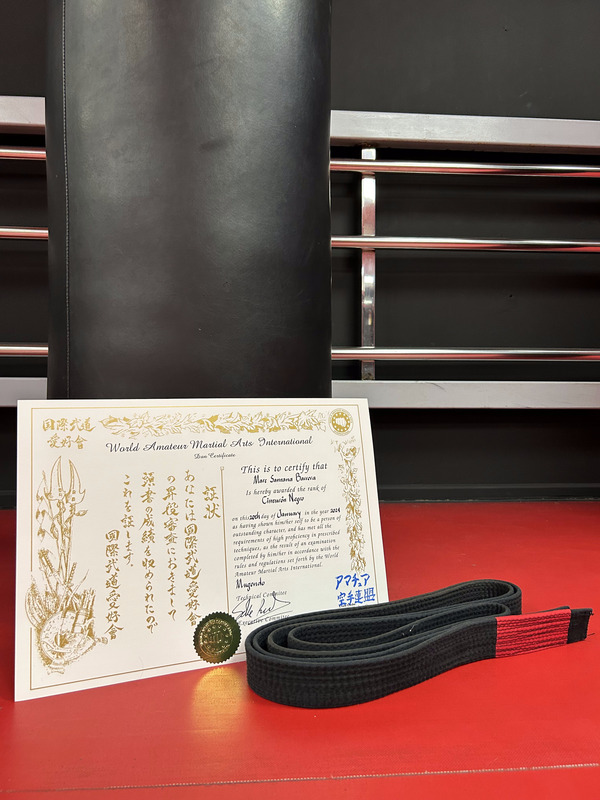 国際武道
愛好會
World Amateur Martial Arts International
Dan Certificate
証状
あなたは国際武道愛好會
の昇段審査におきまして
頭書の成績を収められたので
これを証します。
国際武道愛好會
This is to certify that
Marc Santana Barrera
Is hereby awarded the rank of
Cinturón Negro
on this 20th day of January in the year 2024
as having shown him/her self to be a person of
outstanding character, and has met all the
requirements of high proficiency in prescribed
techniques, as the result of an examination
completed by him/her in accordance with the
rules and regulations set forth by the World
Amateur Martial Arts International.
Mugendo
Technical Committee
Executive Committee
アマチュア